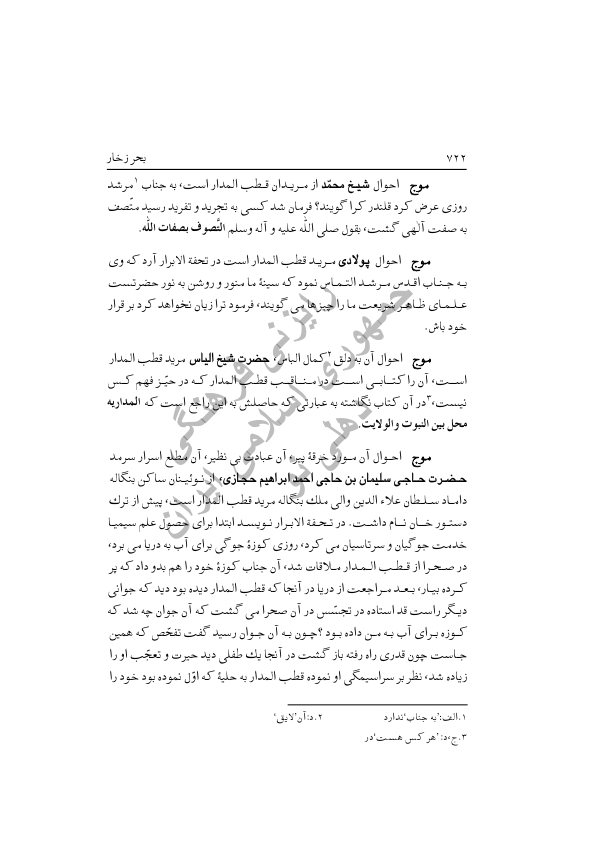 ۷۲۲ بحر زخار
موج احوال شیخ محمّد از مریدان قطب المدار است، به جناب ۱مرشد
روزی عرض کرد قلندر کرا گویند؟ فرمان شد کسی به تجرید و تفرید رسید متّصف
به صفت آلٰهی گشت، بقول صلی اللّٰه علیه و آله وسلم التَّصوف بصفات اللّٰه.
موج احوال پولادی مرید قطب المدار است در تحفة الابرار آرد که وی
به جناب اقدس مرشد التماس نمود که سینۀ ما منور و روشن به نور حضرتست
علمای ظاهر شریعت ما را چیزها می گویند، فرمود ترا زیان نخواهد کرد بر قرار
خود باش.
موج احوال آن به دلق ۲کمال الباس، حضرت شیخ الیاس مرید قطب المدار
است، آن را کتابی است در مناقب قطب المدار که در حیّز فهم کس
نیست،۳در آن کتاب نگاشته به عبارتی که حاصلش به این راجع است که المداریه
محل بین النبوت والولایت.
موج احوال آن مورد خرقۀ پیر، آن عبادت بی نظیر، آن مطلع اسرار سرمد
حضرت حاجی سلیمان بن حاجی احمد ابراهیم حجازی، از نوئینان ساکن بنگاله
داماد سلطان علاء الدین والی ملك بنگاله مرید قطب المدار است، پیش از ترك
دستور خان نام داشت. در تحفة الابرار نویسد ابتدا برای حصول علم سیمیا
خدمت جوگیان و سرتاسیان می کرد، روزی کوزۀ جوگی برای آب به دریا می برد،
در صحرا از قطب المدار ملاقات شد، آن جناب کوزۀ خود را هم بدو داد که پر
کرده بیار، بعد مراجعت از دریا در آنجا که قطب المدار دیده بود دید که جوانی
دیگر راست قد استاده در تجسّس در آن صحرا می گشت که آن جوان چه شد که
کوزه برای آب به من داده بود ؟چون به آن جوان رسید گفت تفحّص که همین
جاست چون قدری راه رفته باز گشت در آنجا یك طفلی دید حیرت و تعجّب او را
زیاده شد، نظر بر سراسیمگی او نموده قطب المدار به حلیۀ که اوّل نموده بود خود را
۱.الف:'به جناب'ندارد ۲.د:آن'لایق'
۳.ج،د: 'هر کس هست'در
رایزنی فرهنگی
جمهوری اسلامی ایران
دهلی نو